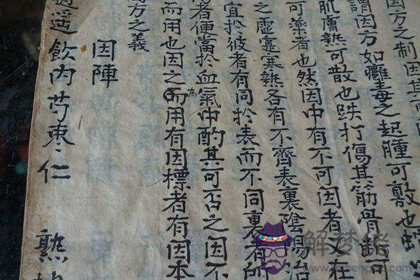 因方之制因其
謂因方如癰毒之起腫可敷也
肌膚熱可散也跌打傷其筋骨
可藥者也然因中有不可因者又在
之虛實寒熱各有不齊表裏陰陽
宜扵彼者有同扵表而不同裏有所
者便當扵血氣中酌其可否之因不
而用也因之而用有因標者有因本
方之義
因陣
逍遥飲內芎棗仁 熟